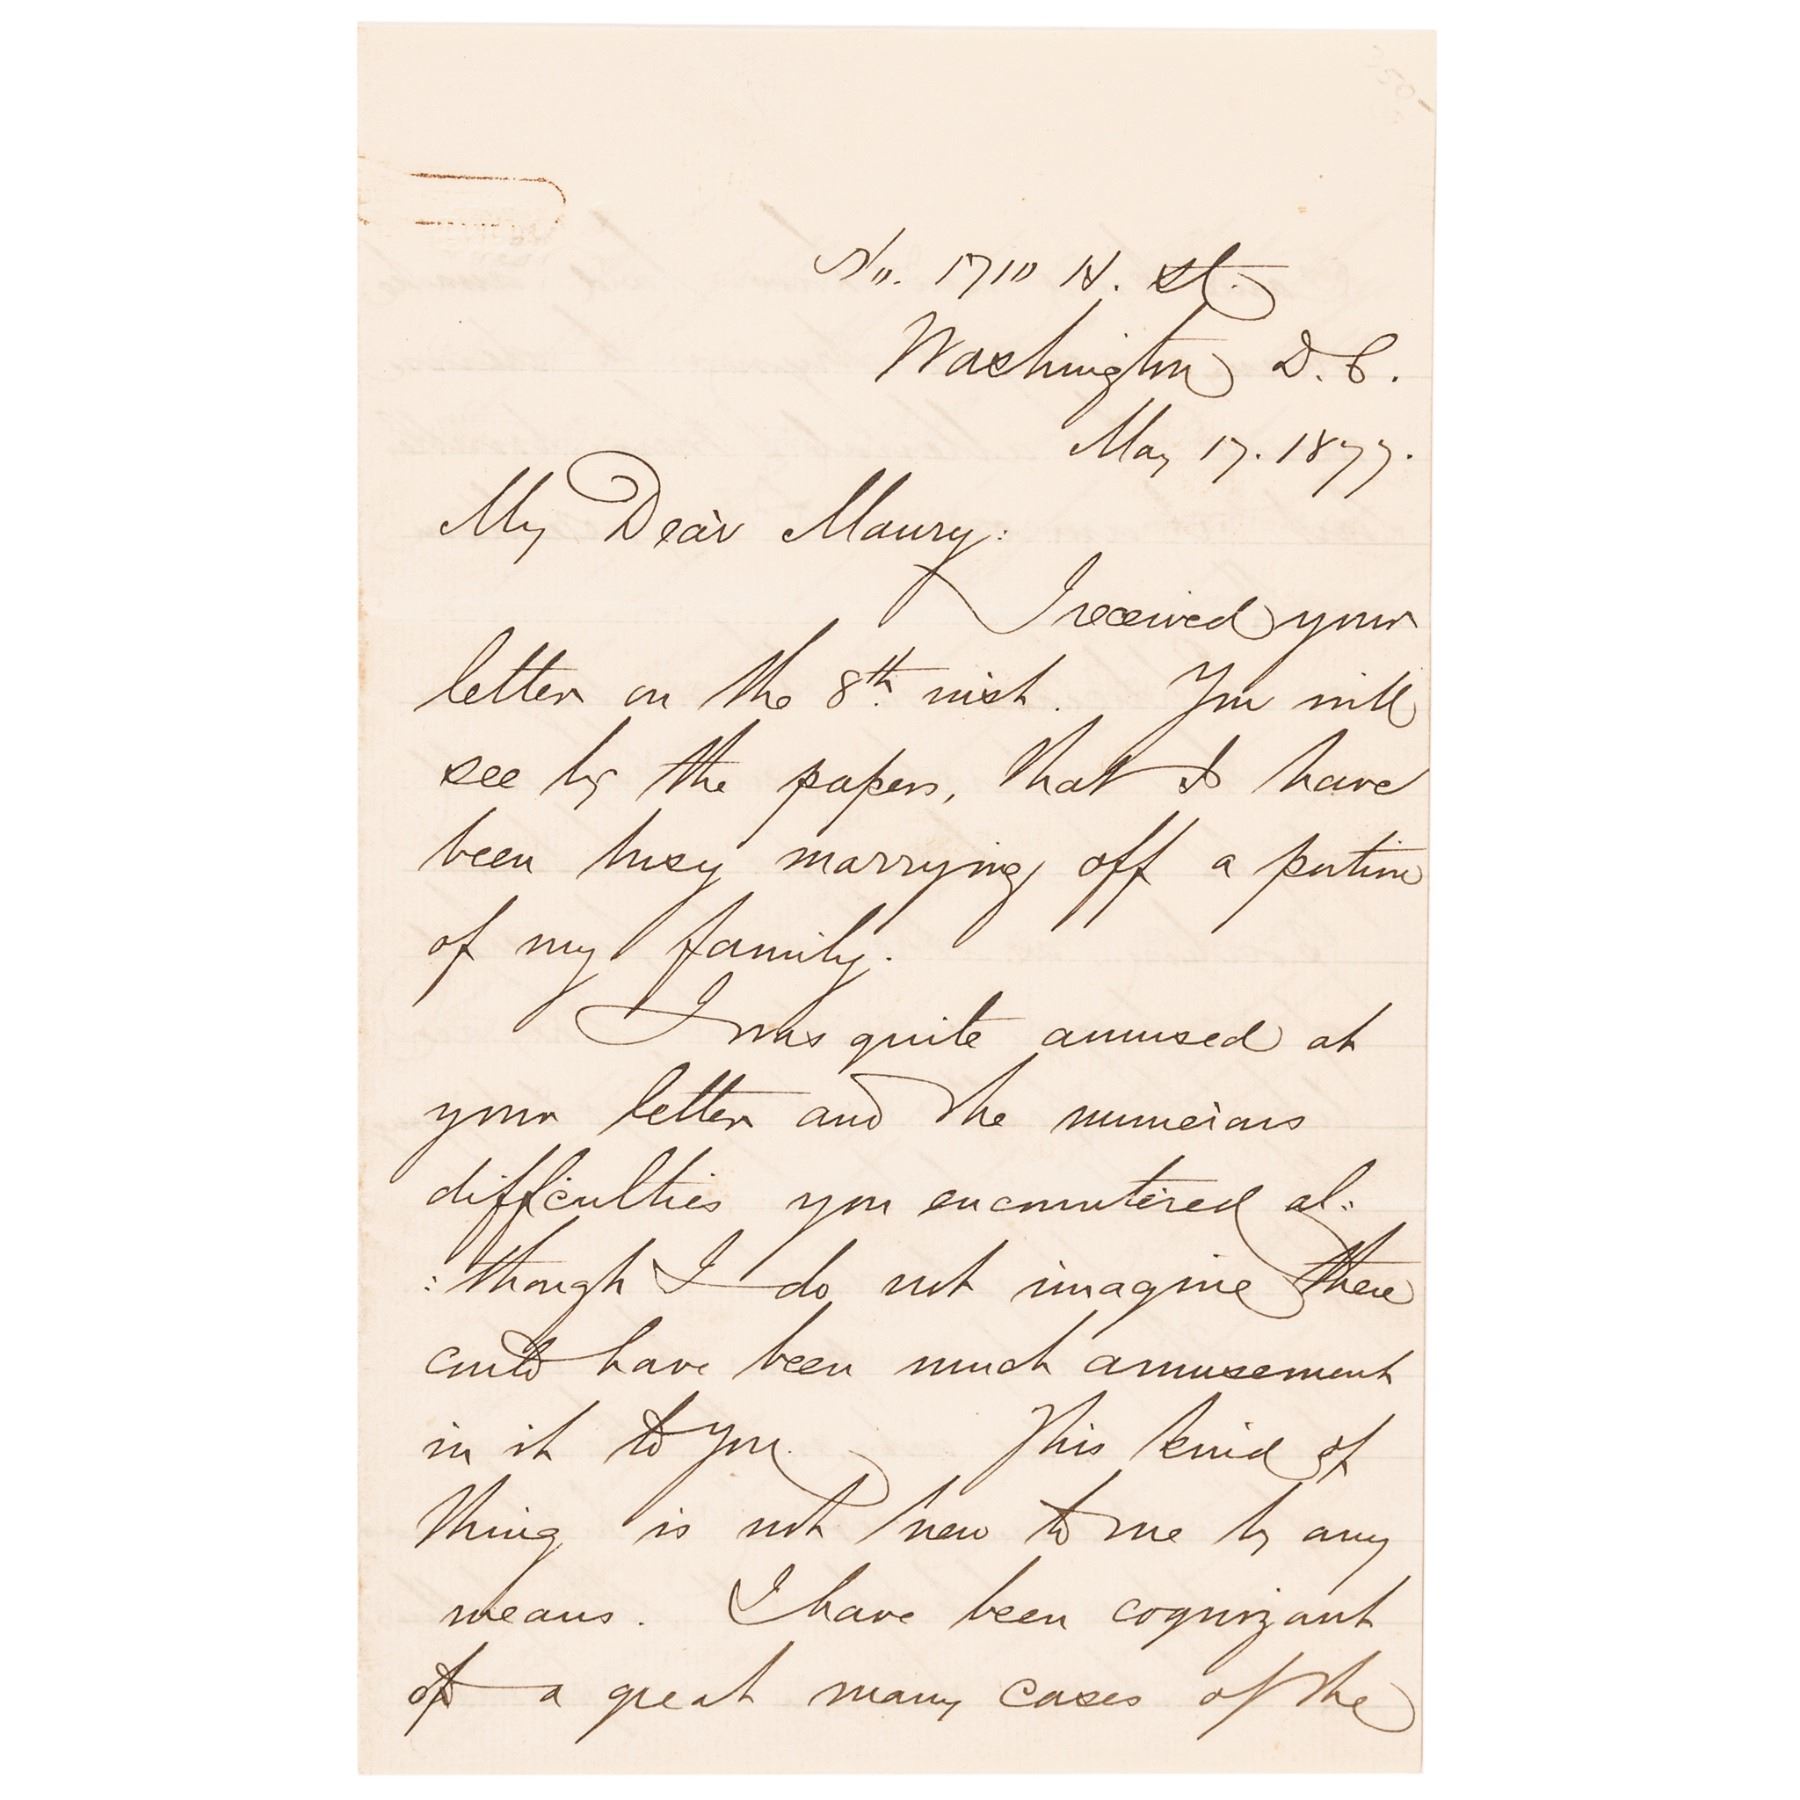 No. 1710 H. St.
Washington D.C.
May 17. 1877.
My Dear Maury:
I received your
letter on the 8th. inst. You will
see by the papers, that I have
been busy marrying off a portion
of my family.
I was quite amused at
your letter and the numerous
difficulties you encountered al:
:though I do not imagine there
could have been much amusement
in it to you. This kind of
thing is not new to me by any
means. I have been cognizant
of a great many cases of the